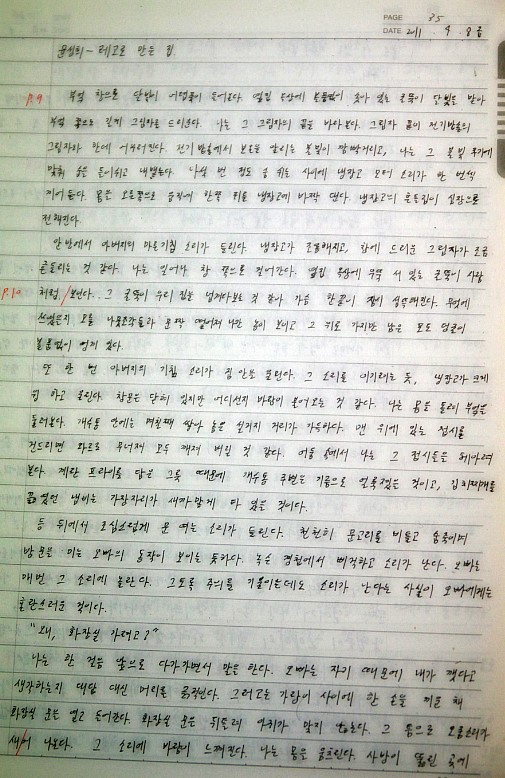 PAGE 35
DATE 2011 4 8 금
윤성희 - 레고로 만든 집.
P.9 부엌 창으로 달빛이 어렴풋이 들어온다. 옆집 옥상에 볼품없이 꽂아 있는 굴뚝이 달빛을 받아
부엌 쪽으로 길게 그림자를 드리운다. 나는 그 그림자의 끝을 바라본다. 그림자 끝이 전기밥솥의
그림자와 만데 어우러진다. 전기밥솥에서 보온을 알리는 불빛이 깜빡거리고, 나는 그 불빛 주기에
맞춰 숨을 들이쉬고 내뱉는다. 나흘 번 정도 숨 쉬는 사이에 냉장고 모터 소리가 한 번씩
끼어든다. 몸을 오른쪽으로 움직여 한쪽 귀를 냉장고에 바짝 댄다. 냉장고의 흔들림이 심장으로
전해진다.
안방에서 아버지의 마른기침 소리가 들린다. 냉장고가 조용해지고, 창에 드리운 그림자가 조금
흔들리는 것 같다. 나는 일어나 창 쪽으로 걸어간다. 옆집 옥상에 우뚝 서 있는 굴뚝이 사람
P.10 처럼 보인다. 그 굴뚝이 우리 집을 넘겨다보는 것 같아 가끔 한쪽이 잠시 섬뜩해진다. 무엇에
쓰였는지 모를 나무조각들과 문짝 떨어져 나간 농이 보이고 그 위로 가지만 남은 포도 덩굴이
볼품없이 엉켜 있다.
또 한 번 아버지의 기침 소리가 집 안을 울린다. 그 소리를 이기려는 듯, 냉장고가 크게
윙 하고 울린다. 창문은 닫혀 있지만 어디선지 바람이 불어오는 것 같다. 나는 몸을 돌려 부엌을
둘러본다. 개수통 안에는 며칠째 쌓아 놓은 설거지 거리가 가득하다. 맨 위에 있는 접시를
건드리면 와르르 무너져 모두 깨져 버릴 것 같다. 어둠 속에서 나는 그 접시들을 헤아려
본다. 계란 프라이를 담은 그릇 때문에 개수통 주변은 기름으로 얼룩졌을 것이고, 김치찌개를
끓였던 냄비는 가장자리가 새까맣게 다 탔을 것이다.
등 뒤에서 조심스럽게 문 여는 소리가 들린다. 천천히 문고리를 비틀고 숨죽이며
방문을 미는 오빠의 동작이 보이는 듯하다. 녹슨 경첩에서 삐걱하고 소리가 난다. 오빠는
매번 그 소리에 놀란다. 그토록 주의를 기울이는데도 소리가 난다는 사실이 오빠에게는
혼란스러운 것이다.
"왜, 화장실 가려고?"
나는 한 걸음 앞으로 다가가면서 말을 한다. 오빠는 자기 때문에 내가 깼다고
생각하는지 대답 대신 머리를 긁적인다. 그러고는 가랑이 사이에 한 손을 끼운 채
화장실 문을 열고 들어간다. 화장실 문은 뒤틀려 아귀가 맞지 않는다. 그 틈으로 오줌소리가
새어 나온다. 그 소리에 바람이 느껴진다. 나는 몸을 움츠린다. 사방이 뚫린 곳에